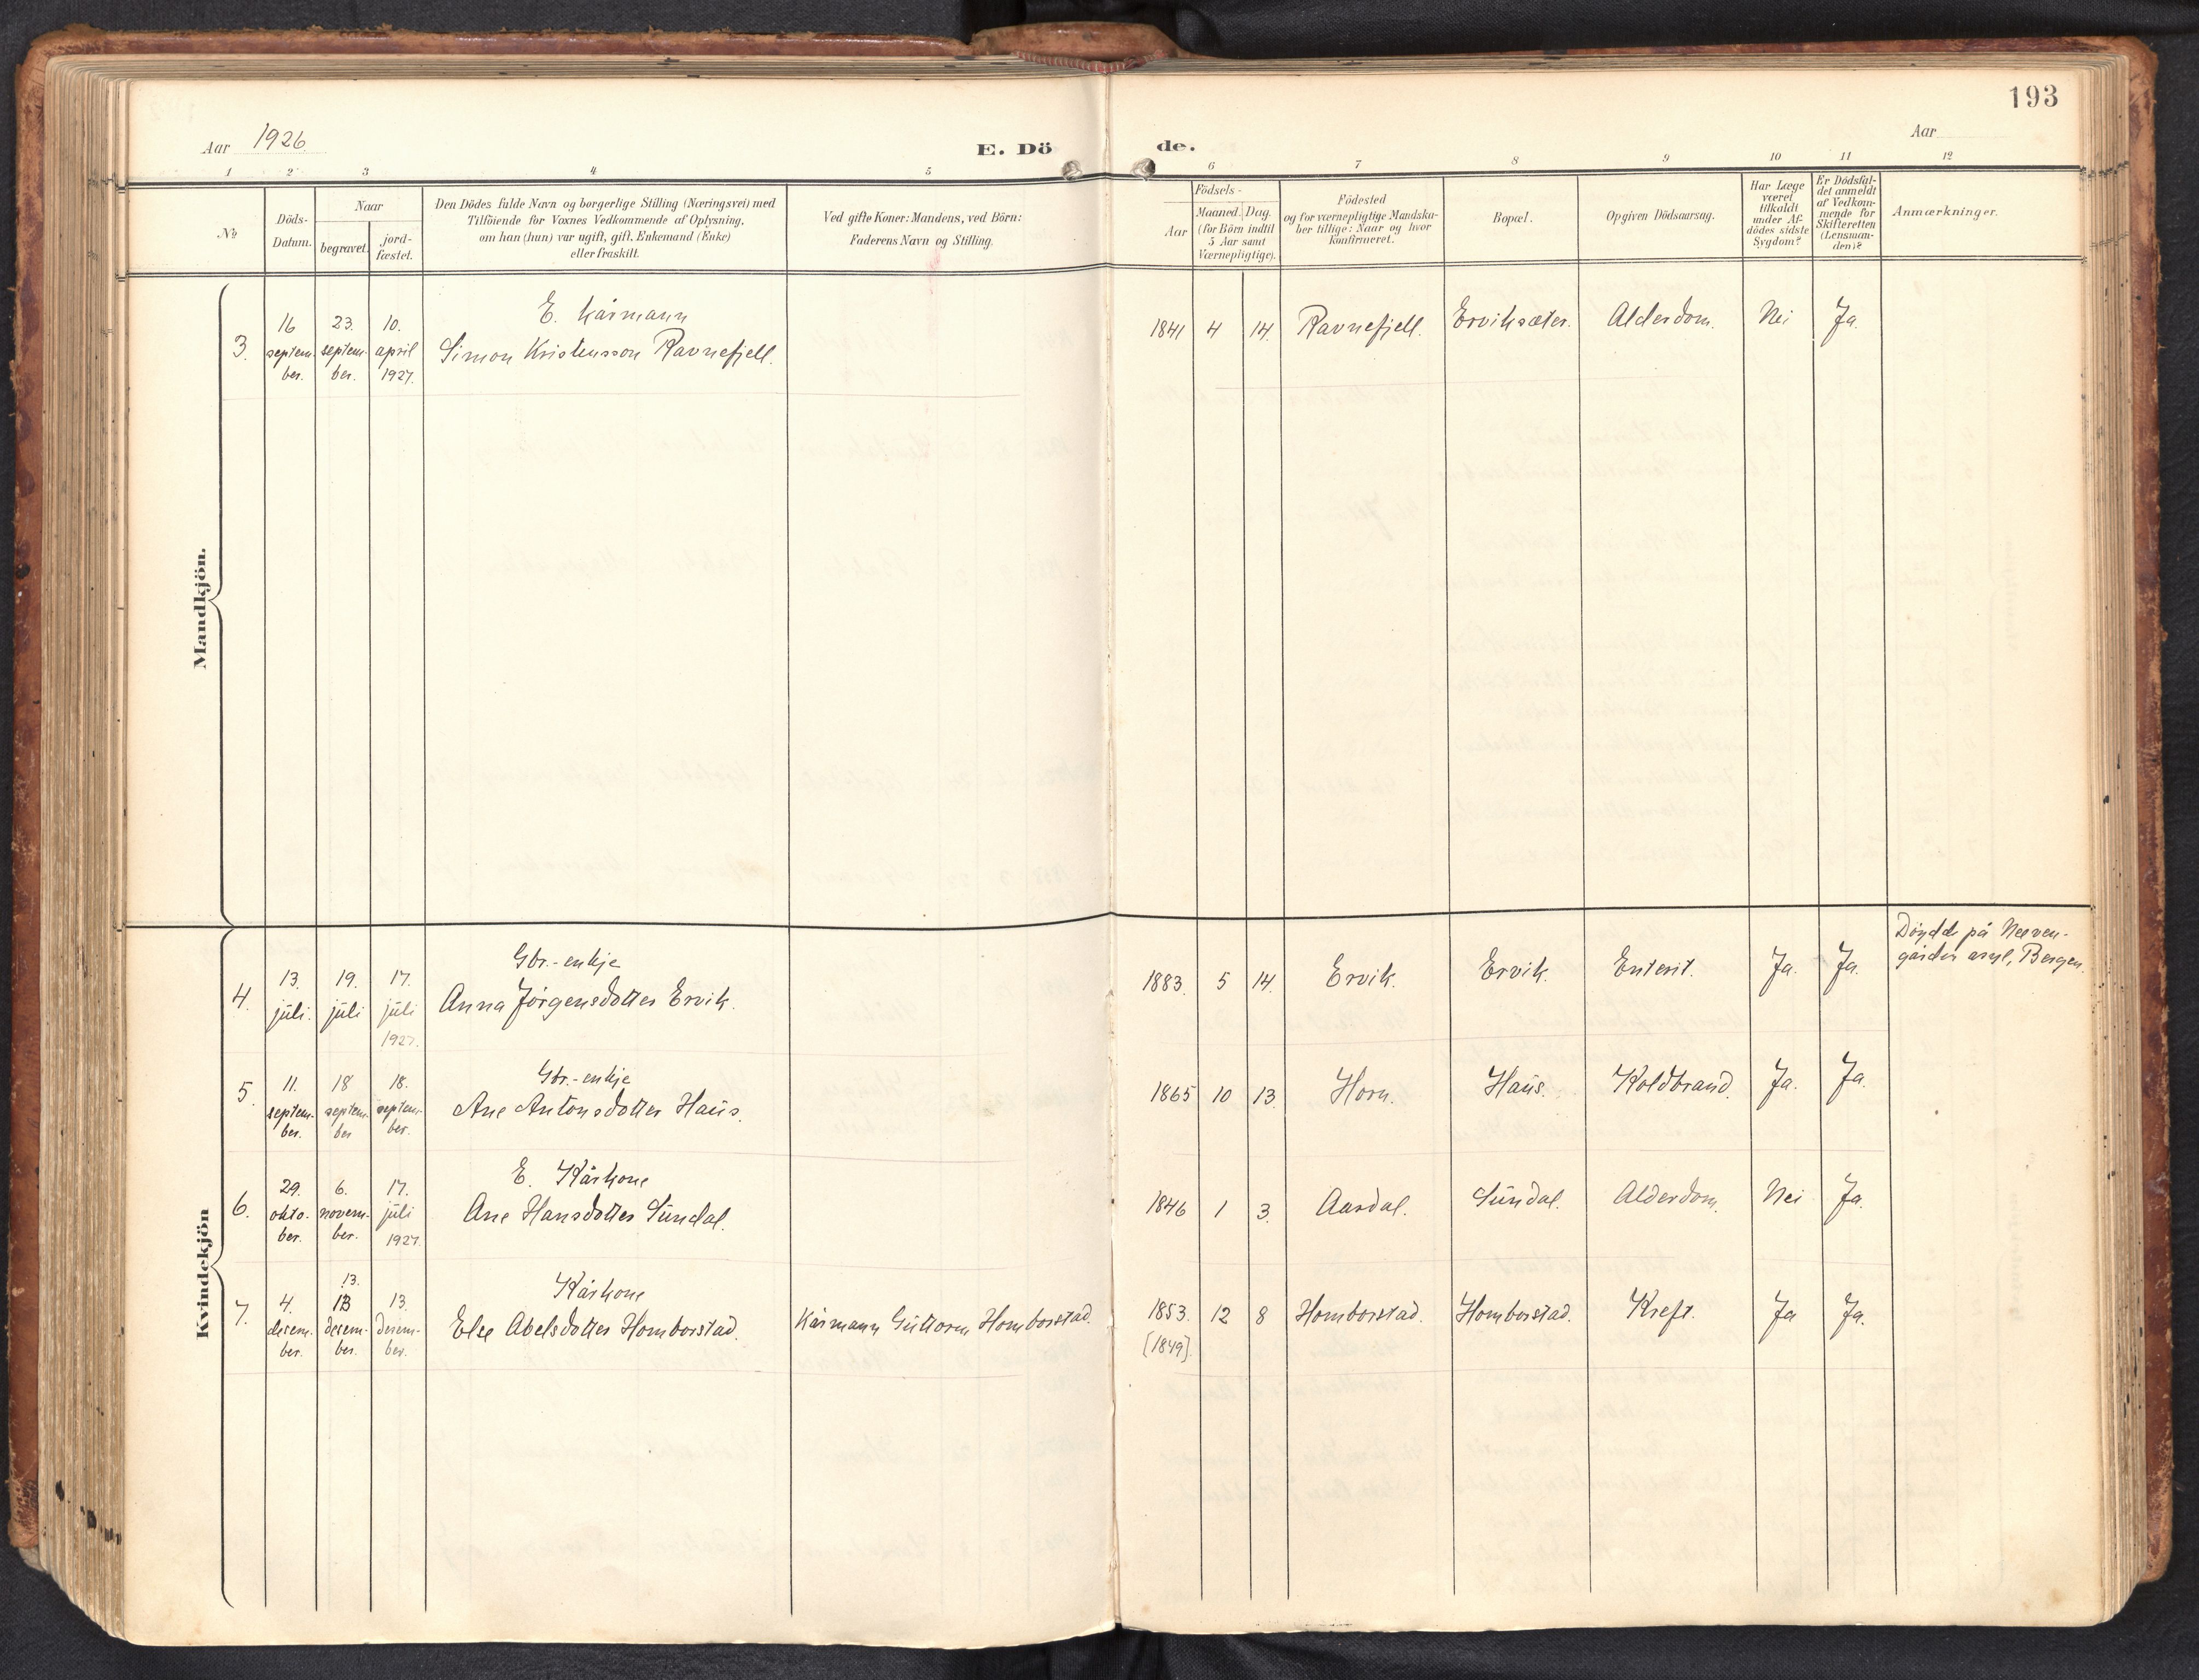 193
Aar 1926.
E. Dö
de.
Aar
1 2 3 4 5 6 7 8 9 10 11 12
No
Döds-
Datum.
Naar
begravet.
jord-
fæstet.
Den Dödes fulde Navn og borgerlige Stilling (Næringsvei) med
Tilföiende for Voxnes Vedkommende af Oplysning,
om han (hun) var ugift, gift, Enkemand (Enke)
eller fraskilt.
Ved gifte Koner: Mandens, ved Börn:
Faderens Navn og Stilling.
Födsels-
Aar
Maaned. Dag.
(for Börn indtil
5 Aar samt
Værnepligtige).
Födested
og for værnepligtige Mandska-
ber tillige: Naar og hvor
konfirmeret.
Bopæl.
Opgiven Dödsaarsag.
Har Læge
været
tilkaldt
under Af-
dödes sidste
Sygdom?
Er Dödsfal-
det anmeldt
af Vedkom-
mende for
Skifteretten
(Lensman-
den)?
Anmærkninger.
Mandkjön.
3.
16
septem-
ber.
23.
septem-
ber.
10.
april
1927.
E. Kårmann
Simon Kristensson Ravnefjell.
1841 4 14. Ravnefjell. Erviksæter. Alderdom. Nei Ja.
Kvindekjön
4.
13.
juli.
19.
juli
17.
juli
1927.
Gbr.-enkje
Anna Jørgensdotter Ervik.
1883. 5 14. Ervik. Ervik. Enterit. Ja. Ja.
Døydde på Neeven-
gården asyl, Bergen.
5.
11.
septem-
ber.
18
septem-
ber
18.
septem-
ber.
Gbr.-enkje
Ane Antonsdotter Haus.
1865 10 13. Horn. Haus. Koldbrand. Ja. Ja.
6.
29.
okto-
ber.
6.
novem-
ber.
17.
juli
1927.
E. Kårkone
Ane Hansdotter Sundal.
1846 1 3. Aardal. Sundal. Alderdom. Nei Ja.
7.
4.
desem-
ber.
13.
13
desem-
ber.
13.
desem-
ber.
Kårkone
Else Abelsdotter Homborstad.
Kårmann Guttorm Homborstad.
1853. 12 8 Homborstad. Homborstad. Kreft. Ja Ja.
[1849].